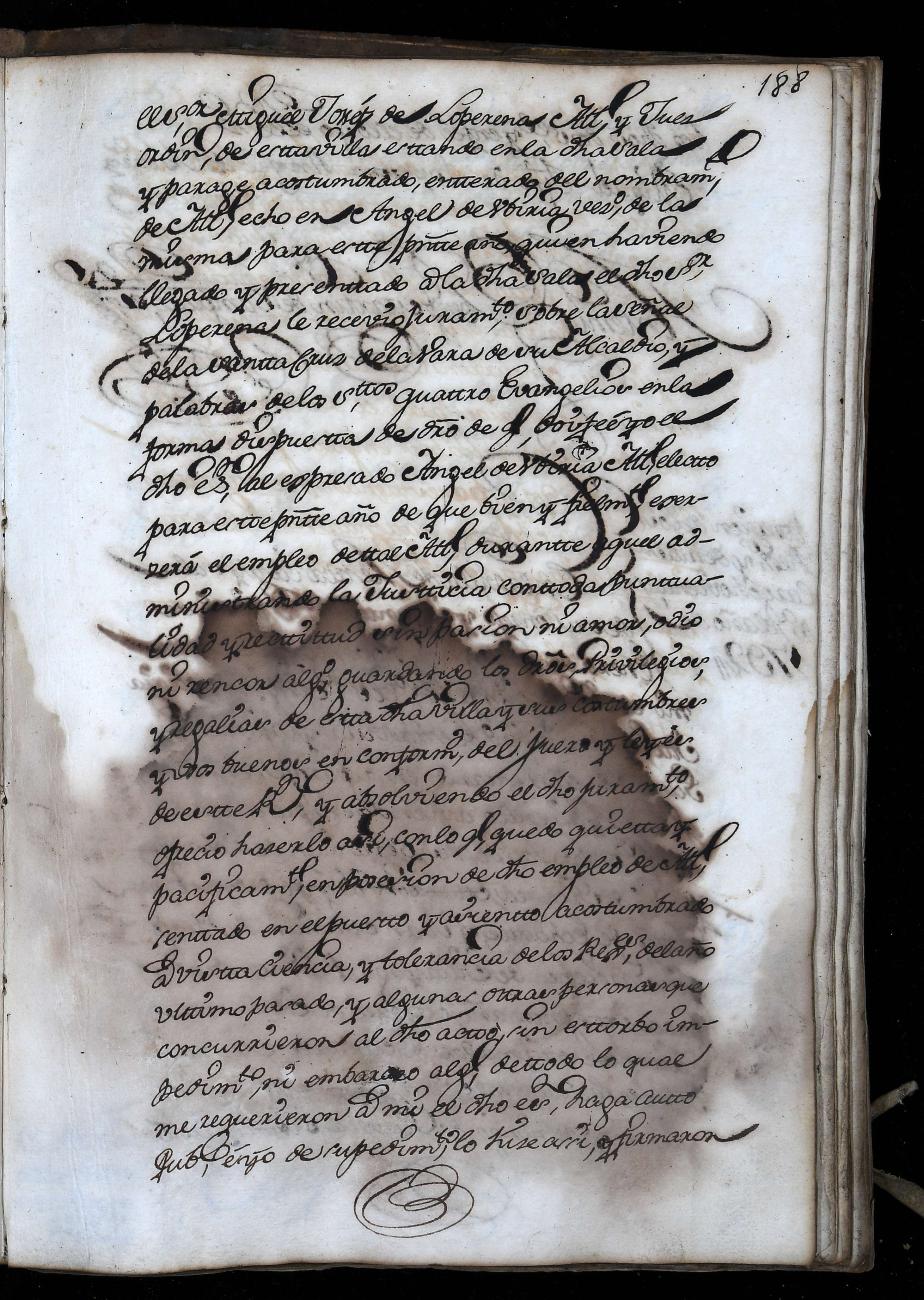 188
el S.or Miguel Joseph de Loperena Alld.e y Juez
ordin.o, de estta villa esttando en la dha Sala
y parage acostumbrado, entterado del nombram.to
de Alld.e echo en Angel de Vbiria vez.o, de la
misma para estte pñtte año, quien haviendo
llegado y presenttado a la dha Sala el dho S.or
Loperena le recevio juram.to, sobre la señal
de la Santta Cruz de la Vara de su Alcaldio, y
palabras de los s.ttos quattro Evangelios en la
forma dispuestta de dro de q.e, doi fee yo el
dho es.no, al espresado Angel de Vbiria Alld.e electo
para estte pñtte año de que bien y fielm.te exer-
zerá el empleo de ttal Alld.e durantte aquel ad-
ministrando la Justticia con ttoda punttua-
lidad y recttittud sin pasion ni amor, odio
ni rencor alg.o guardando los dros, Privilegios,
y regalias de estta dha Villa y sus costumbres
y usos buenos en conform.d, del fuero y leyes
de estte R.no, y absolviendo el dho juram.to
ofrecio hazerlo assi, con lo q.e, quedo quietta y
pacificam.te, en posesion de dho empleo de Alld.e
senttado en el puestto y asientto acostumbrado
a vistta ciencia, y tolerancia de los Reg.res, del año
ulttimo pasado, y algunas ottras personas que
concurrieron al dho acto, sin esttorbo im-
pedim.to, ni embarazo alg.o de ttodo lo qual
me requerieron a mi el dho es.no, haga autto
Pub.co, é yo de su pedim.to, lo hize assi, y firmaron